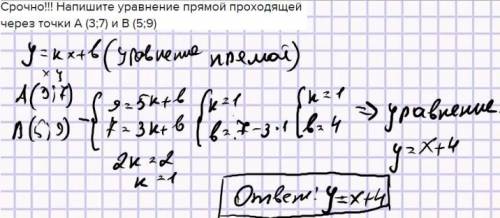 Срочно!!! Напишите уравнение прямой проходящей
через точки А (3;7) и В (5;9)
y = kx + b (уравнение прямой)
x y
A(3;7)
B(5;9) - { 9 = 5k + b { k = 1 { k = 1 => уравнение
7 = 3k + b b = 7 - 3·1 b = 4
2k = 2 y = x + 4
k = 1
Ответ: y = x + 4